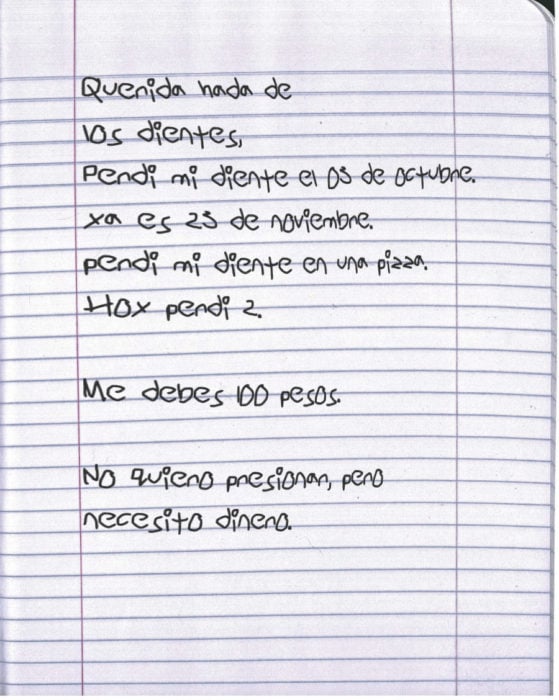 Querida hada de
los dientes,
Perdí mi diente el 03 de octubre.
ya es 23 de noviembre.
perdí mi diente en una pizza.
Hoy perdí 2.
Me debes 100 pesos.
No quiero presionar, pero
necesito dinero.